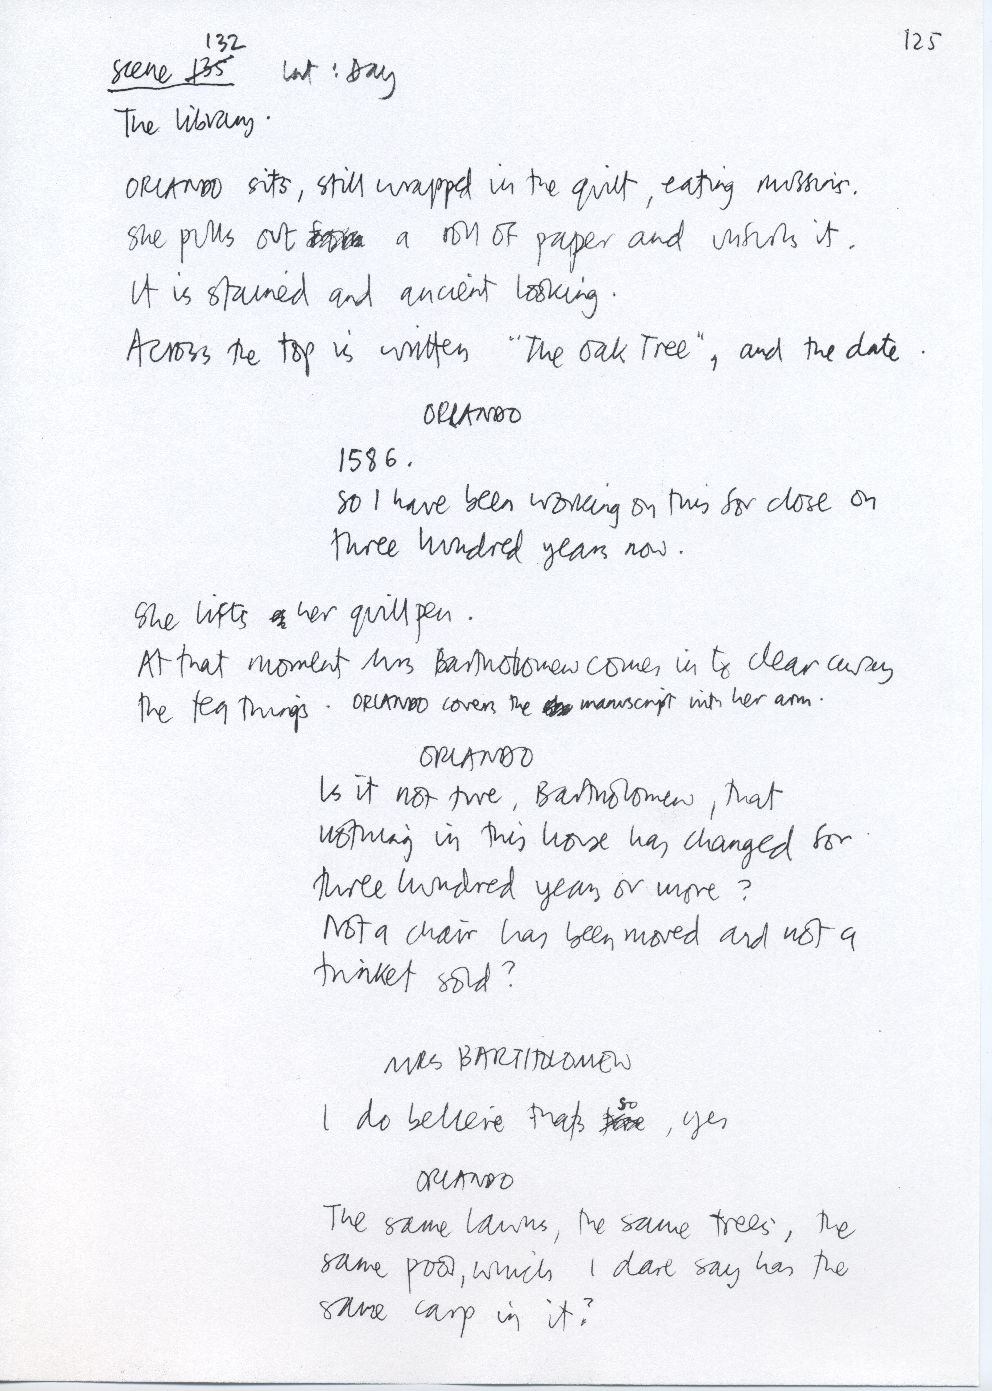 125
132
Scene 135 Int : Day
The library.
ORLANDO sits, still wrapped in the quilt, eating muffins.
She pulls out a roll of paper and unfurls it.
It is stained and ancient looking.
Across the top is written "The Oak Tree", and the date.
ORLANDO
1586.
So I have been working on this for close on
three hundred years now.
She lifts her quill pen.
At that moment Mrs Bartholomew comes in to clear away
the tea things. ORLANDO covers the manuscript with her arm.
ORLANDO
Is it not true, Bartholomew, that
nothing in this house has changed for
three hundred years or more?
Not a chair has been moved and not a
trinket sold?
MRS BARTHOLOMEW
so
I do believe thats , yes
ORLANDO
The same lawns, the same trees, the
same pool, which I dare say has the
same carp in it?